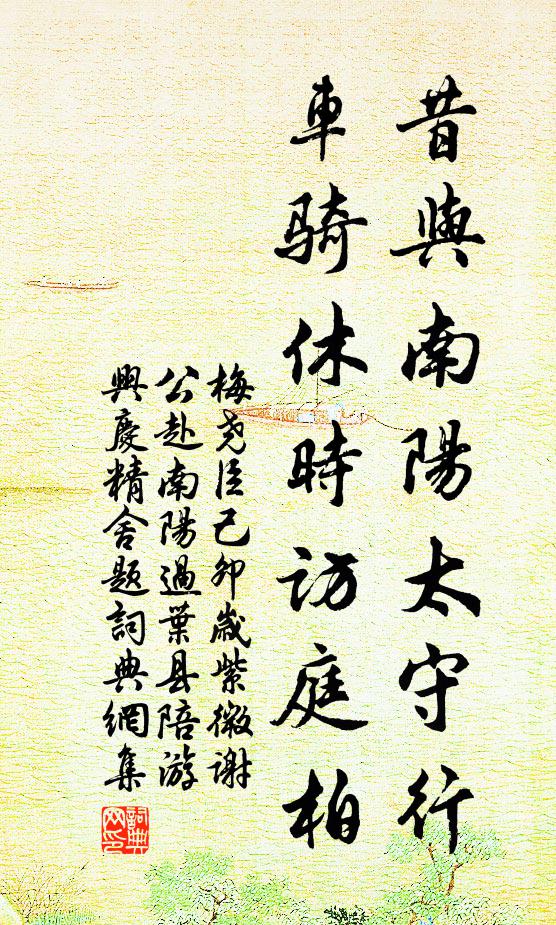 昔與南陽太守行
車骑休時访庭柏
梅尧臣己卯歲紫微谢
公赴南陽過葉县陪游
興慶精舍题詞典網集
詞典网印